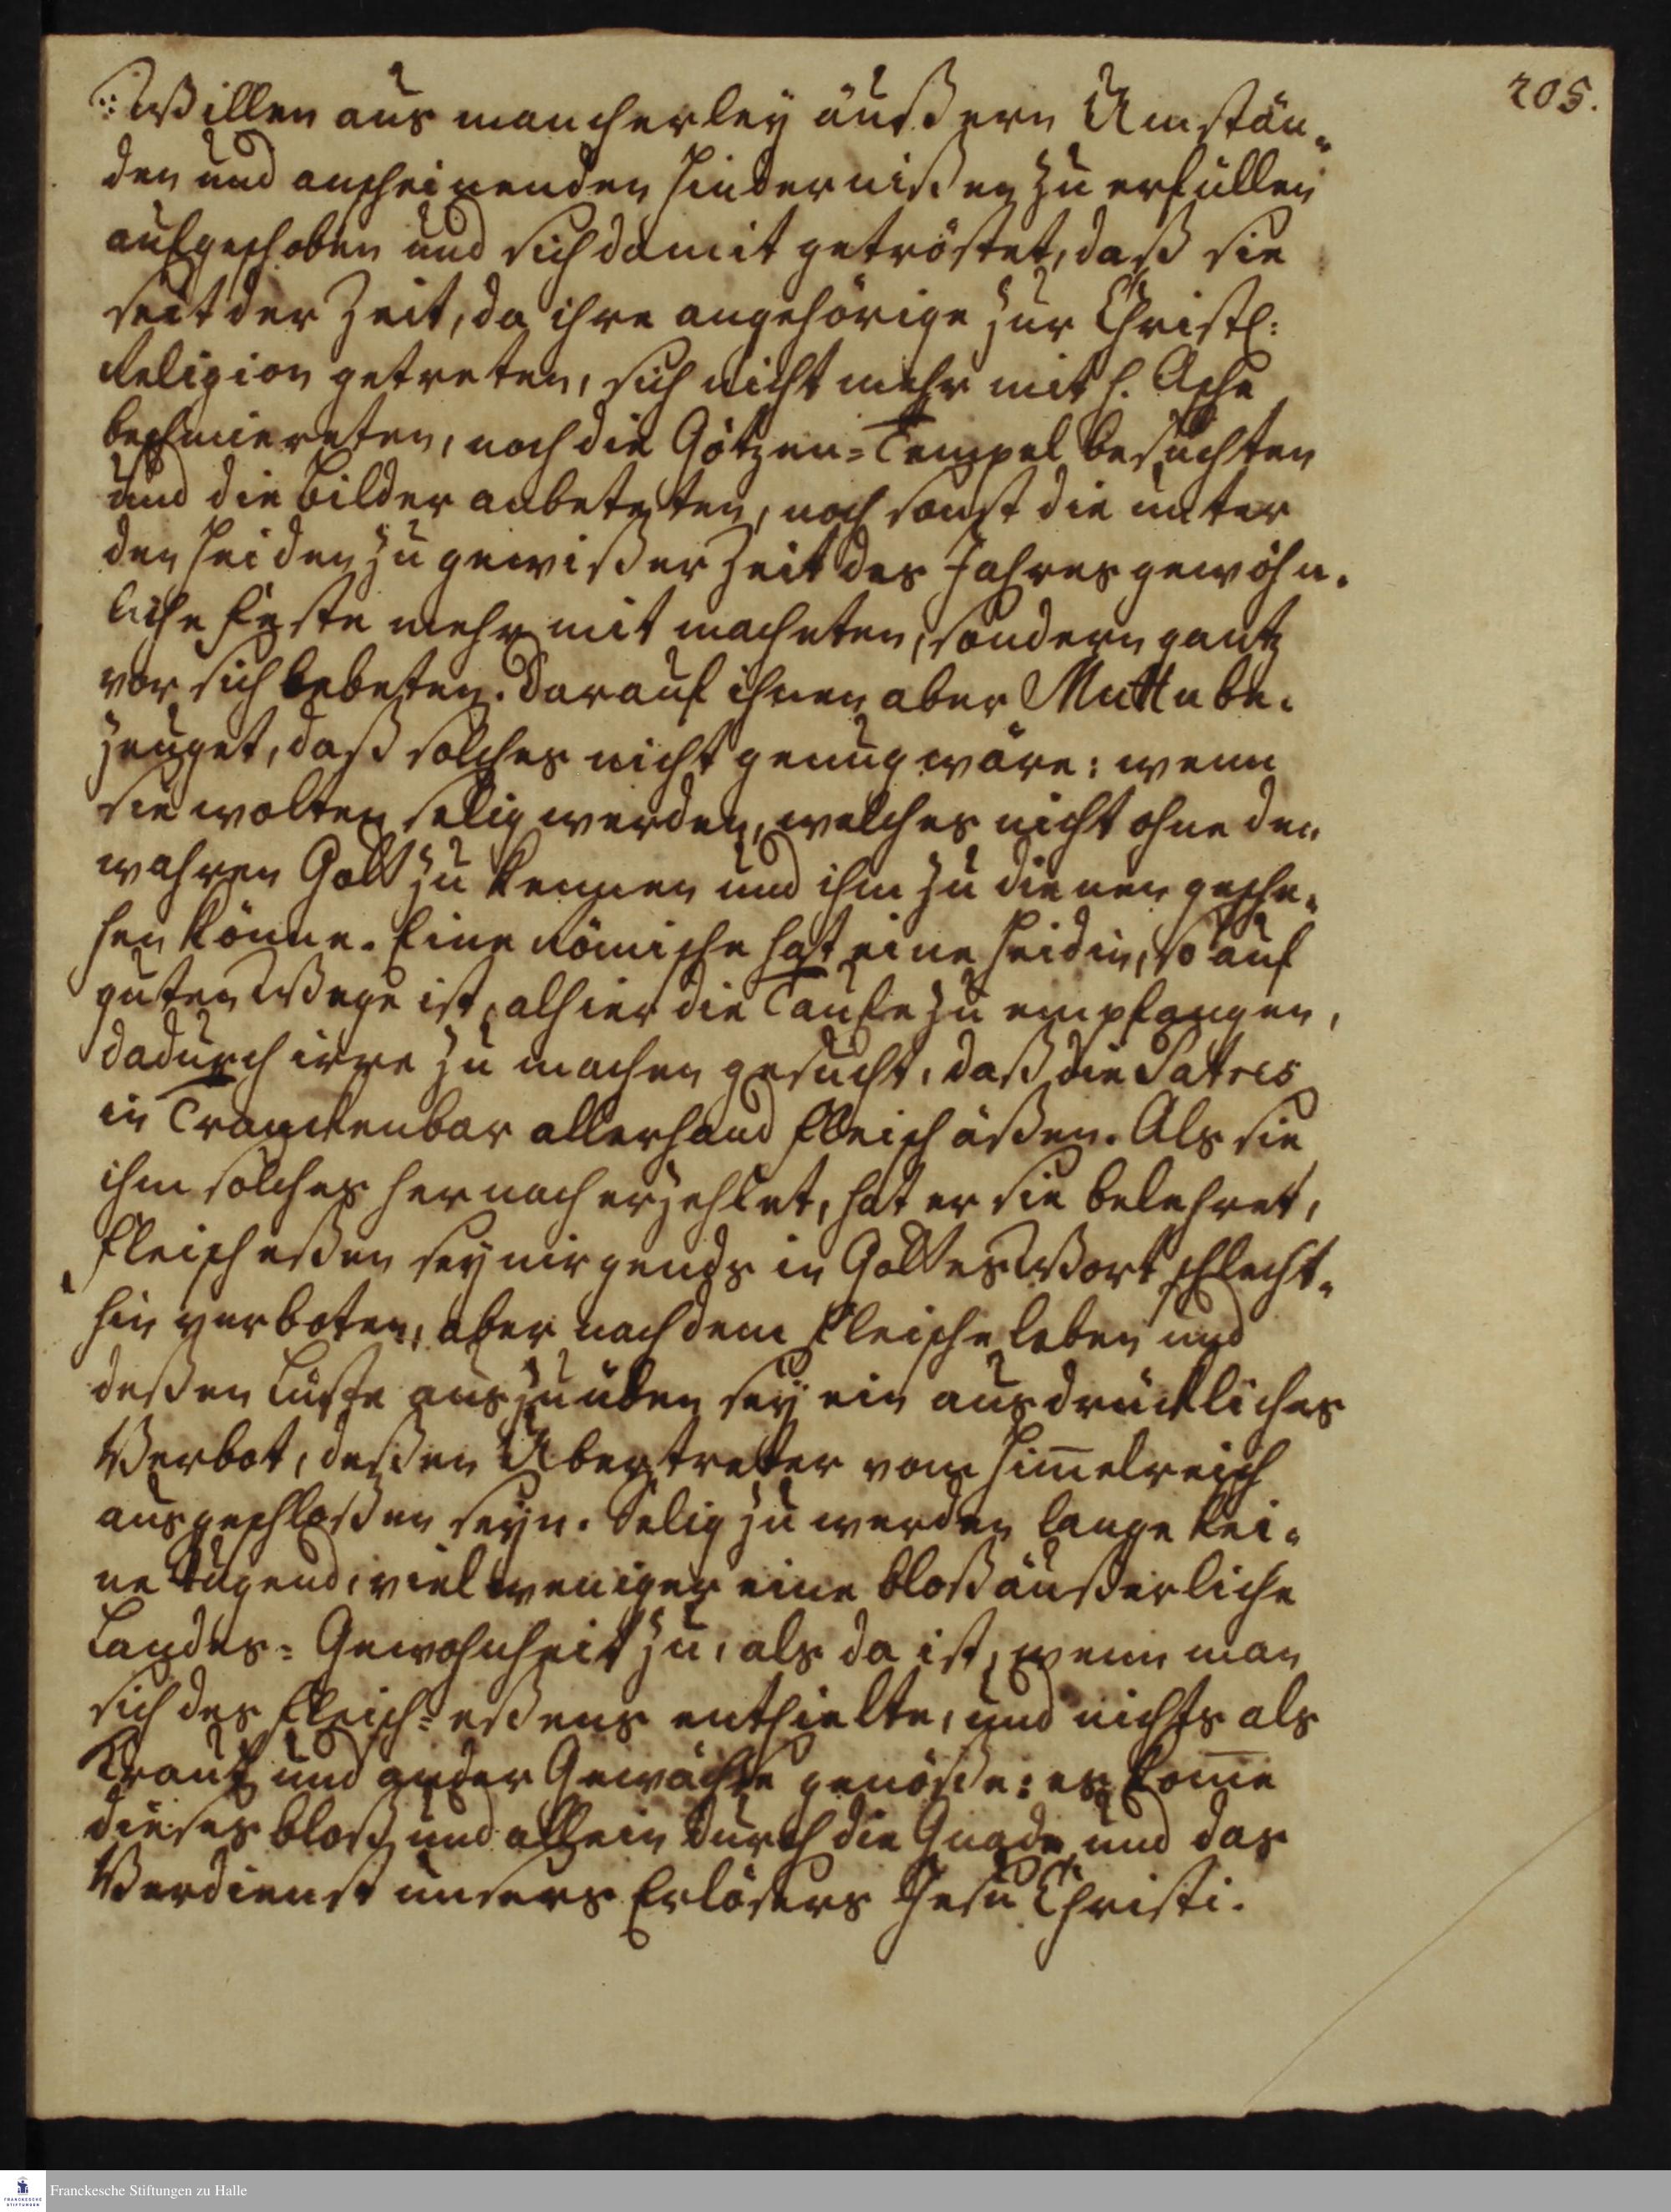 205.
Willen aus mancherley äußern Umstän-
den und anscheinenden Hindernißen zu erfüllen
aufgeschoben und sich damit getröstet, daß sie
seit der Zeit, da ihre angehörige zur Christl:
Religion getreten, sich nicht mehr mit h. Asche
beschmiereten, noch die Götzen-Tempel besuchten
und die Bilder anbeteten, noch sonst die unter
den Heiden zu gewißer Zeit des Jahres gewöhn-
liche Feste mehr mit macheten, sondern gantz
vor sich lebeten. Darauf ihnen aber Muttu be-
zeuget, daß solches nicht genug wäre: wenn
sie wolten selig werden, welches nicht ohne den
wahren Gott zu kennen und ihm zu dienen gesche-
hen könne. Eine römische hat eine Heidin, so auf
guten Wege ist, alhier die Taufe zu empfangen,
dadurch irre zu machen gesucht, daß die Patres
in Tranckenbar allerhand Fleisch äßen. Als sie
ihm solches hernach erzehlet, hat er sie belehret,
Fleisch eßen sey nirgends in Gottes Wort schlecht-
hin verboten, aber nach dem Fleische leben und
deßen Lüste auszuüben sey ein ausdrückliches
Verbot, deßen Übertreter vom Him̄elreich
ausgeschloßen seyn. Selig zu werden lange kei-
ne Tugend, viel weniger eine bloß äußerliche
Landes-Gewohnheit zu, als da ist, wenn man
sich des Fleisch-eßens enthielte, und nichts als
Kraut und ander Gewächse genöße: es kom̄e
dieses bloß und allein durch die Gnade und das
Verdienst unsers Erlösers Jesu Christi.
Franckesche Stiftungen zu Halle
FRANCKESCHE
STIFTUNGEN